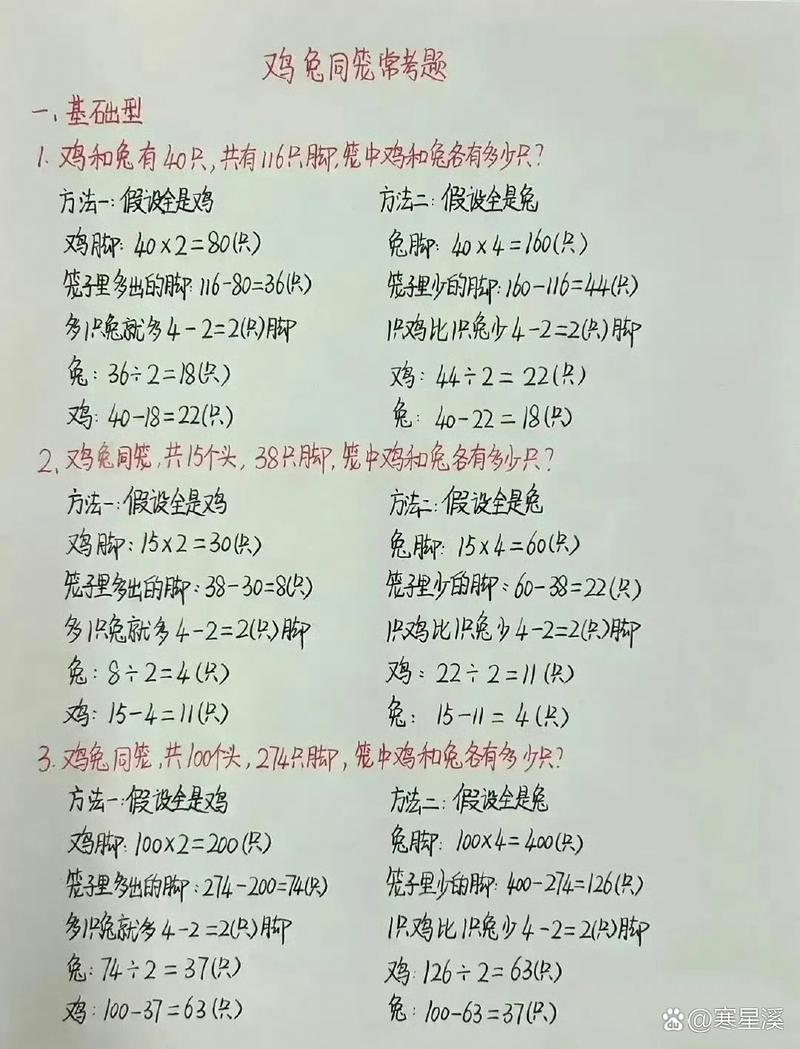 鸡兔同笼常考题
一、基础型
1. 鸡和兔有40只,共有116只脚,笼中鸡和兔各有多少只?
方法一:假设全是鸡
鸡脚:40×2=80(只)
笼子里多出的脚:116-80=36(只)
多1只兔就多4-2=2(只)脚
兔:36÷2=18(只)
鸡:40-18=22(只)
方法二:假设全是兔
兔脚:40×4=160(只)
笼子里少的脚:160-116=44(只)
1只鸡比1只兔少4-2=2(只)脚
鸡:44÷2=22(只)
兔:40-22=18(只)
2、鸡兔同笼,共15个头,38只脚,笼中鸡和兔各有多少只?
方法一:假设全是鸡
鸡脚:15×2=30(只)
笼子里多出的脚:38-30=8(只)
多1只兔就多4-2=2(只)脚
兔:8÷2=4(只)
鸡:15-4=11(只)
方法二:假设全是兔
兔脚:15×4=60(只)
笼子里少的脚:60-38=22(只)
1只鸡比1只兔少4-2=2(只)脚
鸡:22÷2=11(只)
兔:15-11=4(只)
3. 鸡兔同笼,共100个头,274只脚,笼中鸡和兔各有多少只?
方法一:假设全是鸡
鸡脚:100×2=200(只)
笼子里多出的脚:274-200=74(只)
多1只兔就多4-2=2(只)脚
兔:74÷2=37(只)
鸡:100-37=63(只)
方法二:假设全是兔
兔脚:100×4=400(只)
笼子里少的脚:400-274=126(只)
1只鸡比1只兔少4-2=2(只)脚
鸡:126÷2=63(只)
兔:100-63=37(只)
@寒星溪